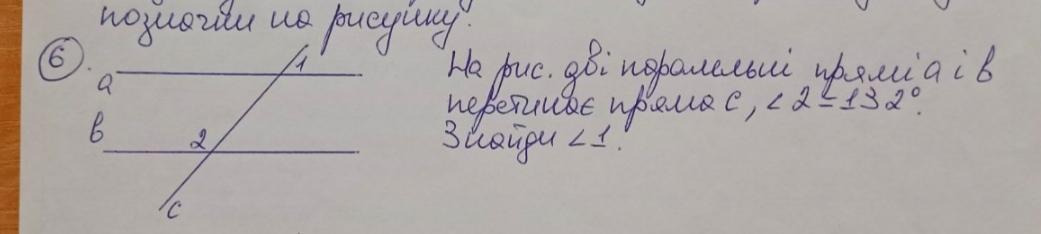 позначки на рисунку.
6.
a
1
b
2
c
На рис. дві паралельні прямі a і b
перетинає пряма c, <2=132°.
Знайди <1.